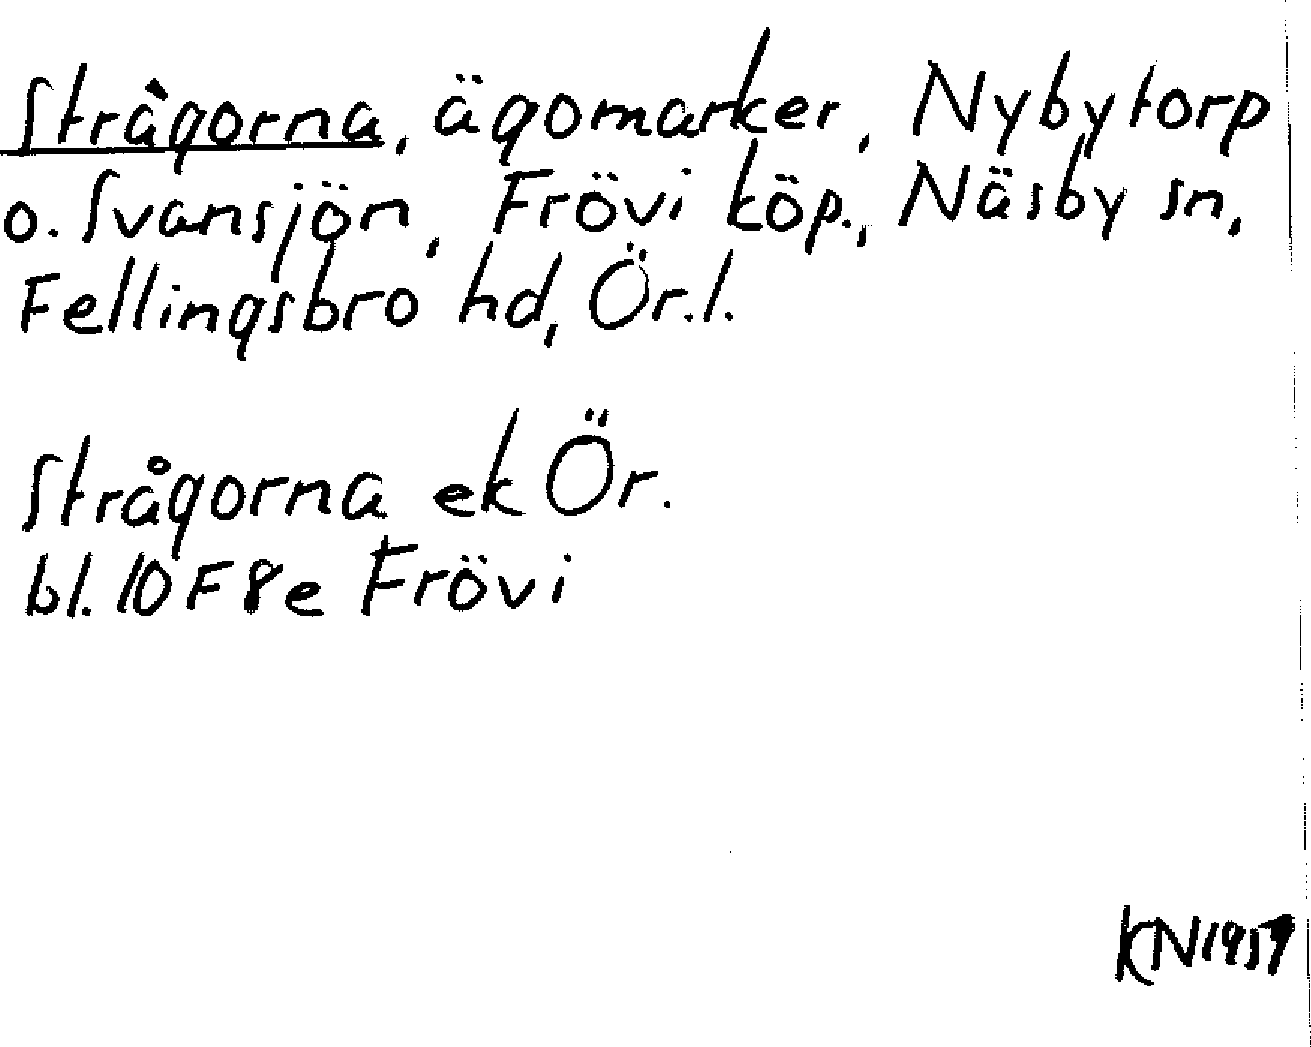 Strågorna, ägomarker, Nybytorp
o. Svansjön, Frövi köp., Näsby sn,
Fellingsbro hd, Ör.l.
Strågorna ek Ör.
bl. 10F8e Frövi
KN1957